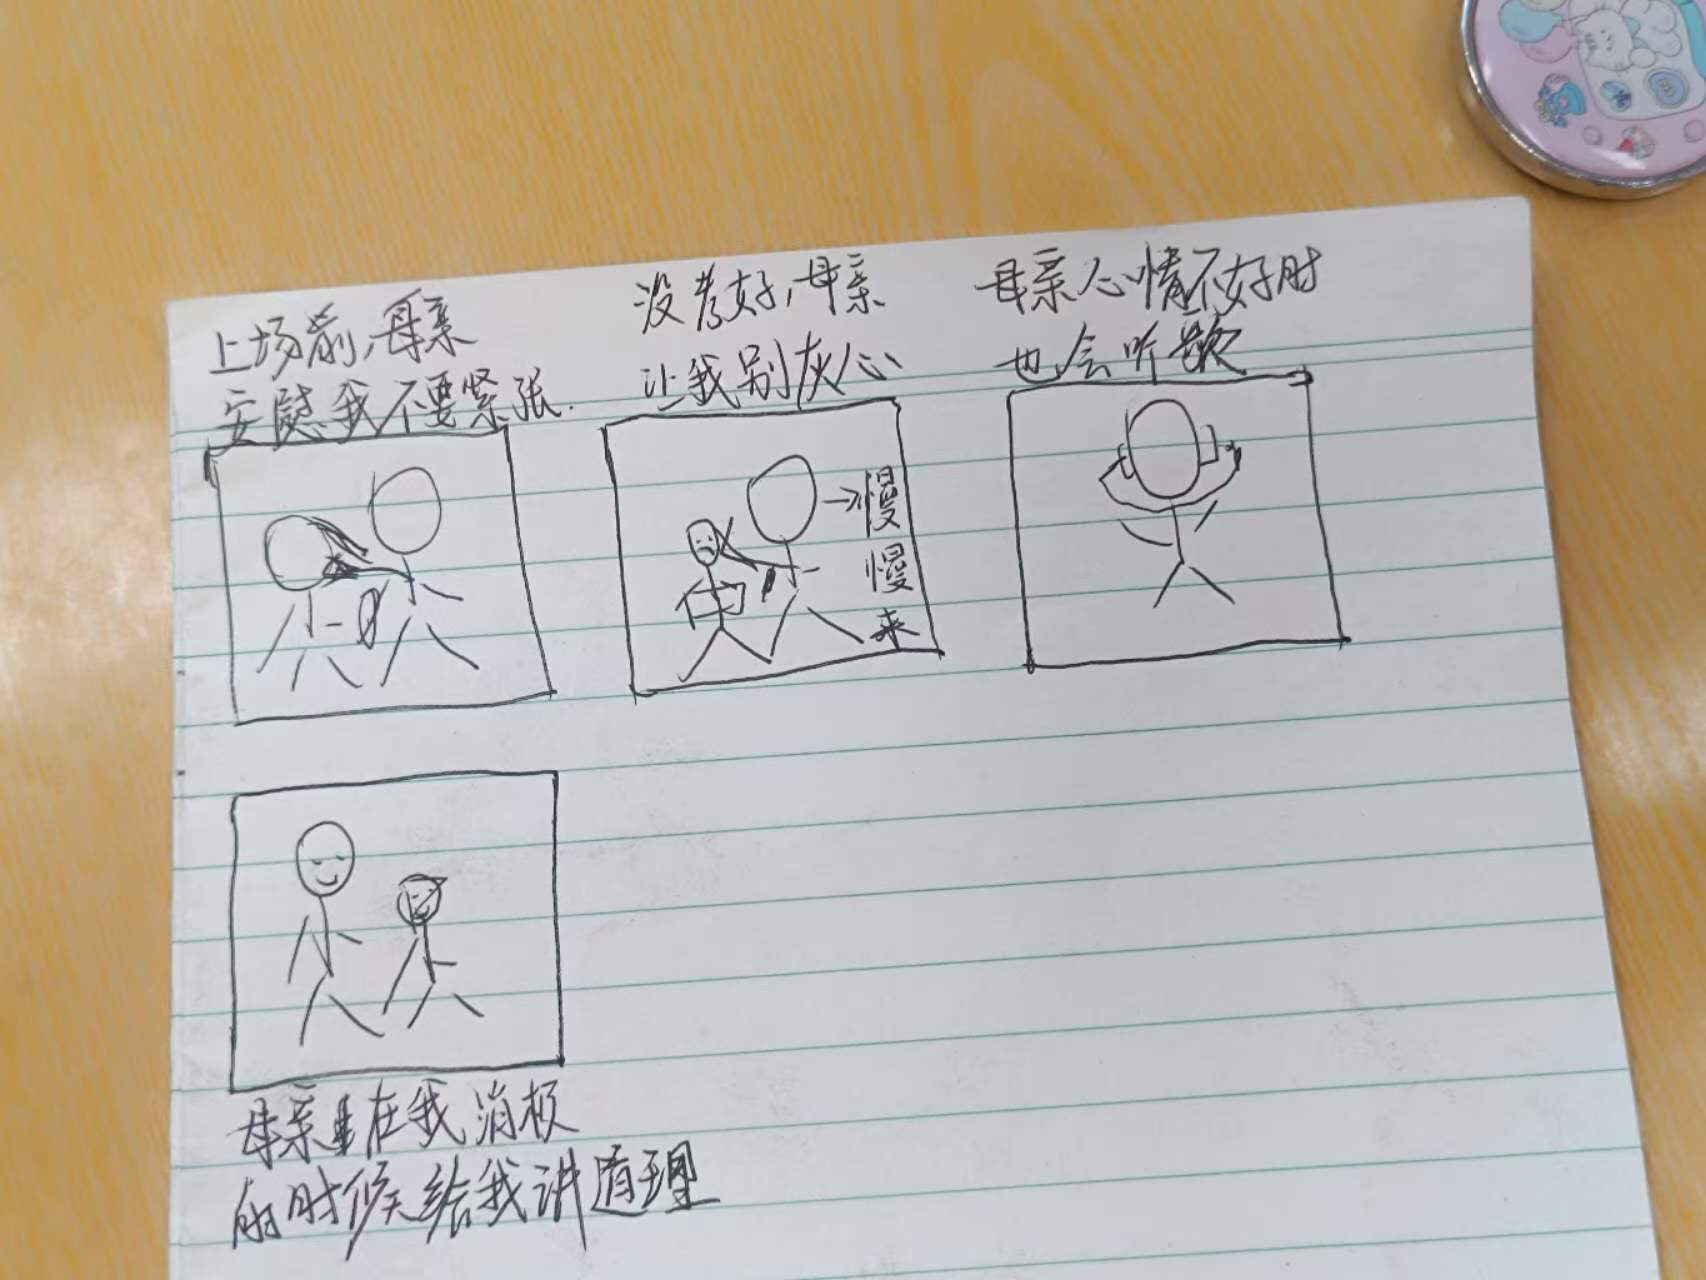 上场前,母亲
安慰我不要紧张.
没考好,母亲
让我别灰心
母亲心情不好时
也会听歌
→慢
慢
来
母亲在我消极
的时候给我讲道理